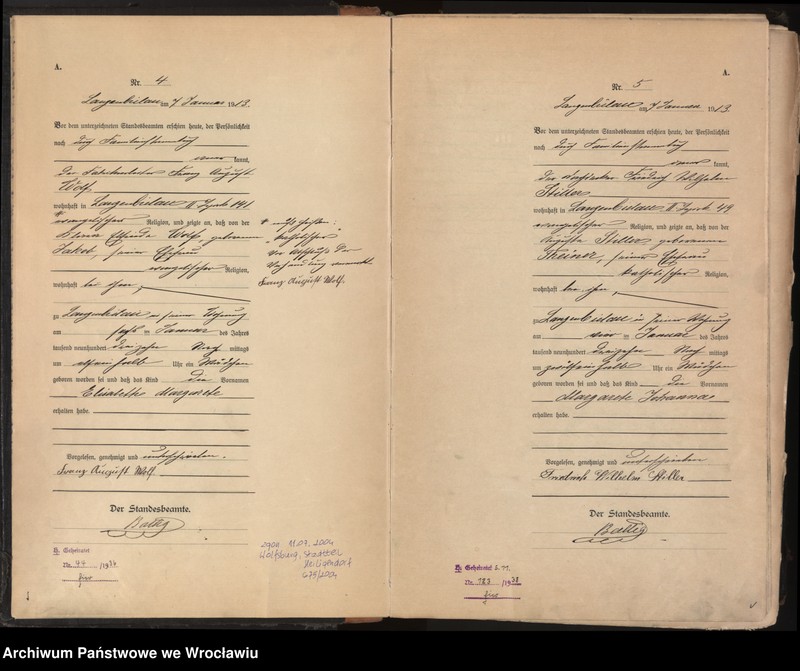 A.
Nr. 4
Langenbielau am 7 Januar 1913.
Vor dem unterzeichneten Standesbeamten erschien heute, der Persönlichkeit
nach durch Familienstammbuch
kannt,
der Fabrikarbeiter Franz August
Wolf
wohnhaft in Langenbielau II Bezirk 141
* evangelischer Religion, und zeigte an, daß von der
Wolf geborenen
seiner Ehefrau
evangelischer Religion,
wohnhaft bei ihm,
zu Langenbielau in seiner Wohnung
am sechs ten Januar des Jahres
tausend neunhundert dreizehn Nach mittags
um Uhr ein Mädchen
geboren worden sei und daß das Kind die Vornamen
Elisabeth Margarete
erhalten habe.
Vorgelesen, genehmigt und unterschrieben.
Franz August Wolf.
Der Standesbeamte.
Battig
Geheiratet
Nr. 44 /1934
* richtig heißen:
"katholischer"
vor Abschluß der
Verhandlung vermerkt.
Franz August Wolf.
11.07.2004
Wolfsburg, Stadtteil
Heiligendorf
475/2004
A.
Nr. 5
Langenbielau am 7 Januar 1913.
Vor dem unterzeichneten Standesbeamten erschien heute, der Persönlichkeit
nach durch Familienstammbuch
kannt,
der Friedrich Wilhelm
Stiller
wohnhaft in Langenbielau II Bezirk 49
evangelischer Religion, und zeigte an, daß von der
Auguste Stiller geborenen
Theiner, seiner Ehefrau
katholischer Religion,
wohnhaft bei ihm,
zu Langenbielau in seiner Wohnung
am vier ten Januar des Jahres
tausend neunhundert dreizehn Nach mittags
um zwölfeinhalb Uhr ein Mädchen
geboren worden sei und daß das Kind die Vornamen
Margarete Johanna
erhalten habe.
Vorgelesen, genehmigt und unterschrieben
Friedrich Wilhelm Stiller
Der Standesbeamte.
Battig
Geheiratet
Nr. 183 /1938
Archiwum Państwowe we Wrocławiu